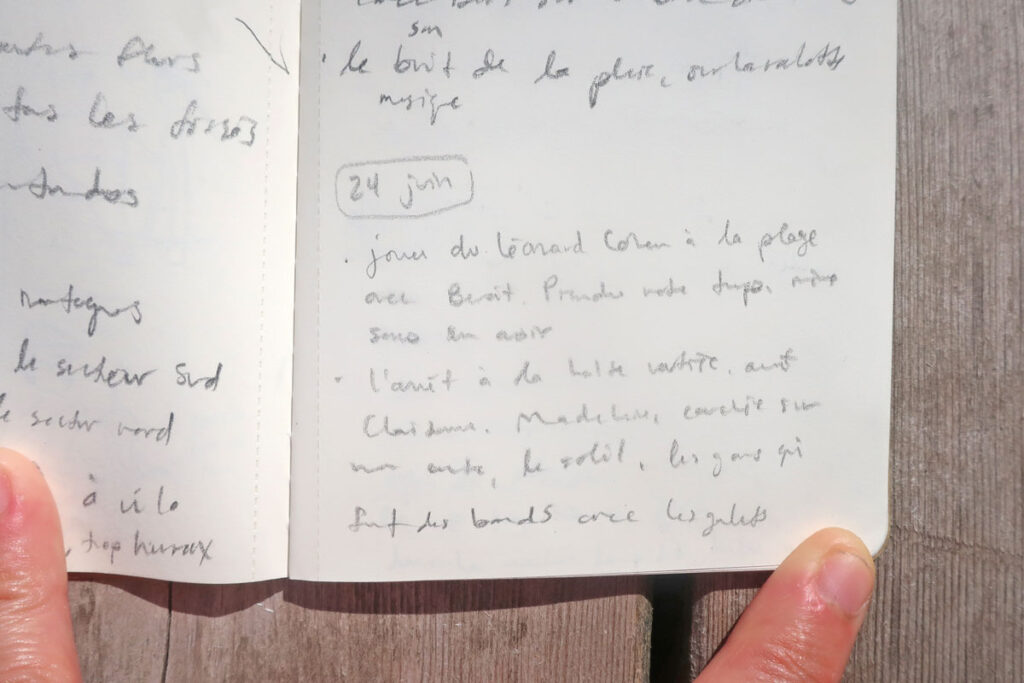 autres fleurs
tous les fossés
le secteur sud
le secteur nord
à vélo
, trop heureux
son
• le bruit de la pluie, sur la
musique
24 juin
• jouer du Léonard Cohen à la plage
avec Benoit. Prendre notre temps, même
sans en avoir
• l'arrêt à la halte routière, avant
. Madeleine, couchée sur
mon , le soleil, les gens qui
font des bonds avec les galets